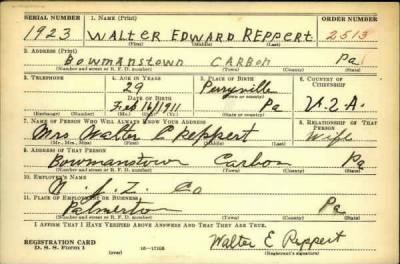 SERIAL NUMBER 1. NAME (Print) ORDER NUMBER
1923 WALTER EDWARD REPPERT 2513
(First) (Middle) (Last)
2. ADDRESS (Print)
BOWMANSTOWN CARBON Pa
(Number and street or R. F. D. number) (Town) (County) (State)
3. TELEPHONE 4. AGE IN YEARS 5. PLACE OF BIRTH 6. COUNTRY OF CITIZENSHIP
29 Perryville
DATE OF BIRTH (Town or county)
Feb 16 1911 Pa U.S.A.
(Exchange) (Number) (Mo.) (Day) (Yr.) (State or country)
7. NAME OF PERSON WHO WILL ALWAYS KNOW YOUR ADDRESS 8. RELATIONSHIP OF THAT PERSON
Mrs Walter E Reppert Wife
(Mr., Mrs., Miss) (First) (Middle) (Last)
9. ADDRESS OF THAT PERSON
Bowmanstown Carbon Pa
(Number and street or R. F. D. number) (Town) (County) (State)
10. EMPLOYER'S NAME
N. J. Z. Co
11. PLACE OF EMPLOYMENT OR BUSINESS
Palmerton Pa
(Number and street or R. F. D. number) (Town) (County) (State)
I AFFIRM THAT I HAVE VERIFIED ABOVE ANSWERS AND THAT THEY ARE TRUE.
REGISTRATION CARD
D. S. S. Form 1 (over) Walter E Reppert
(Registrant's signature)